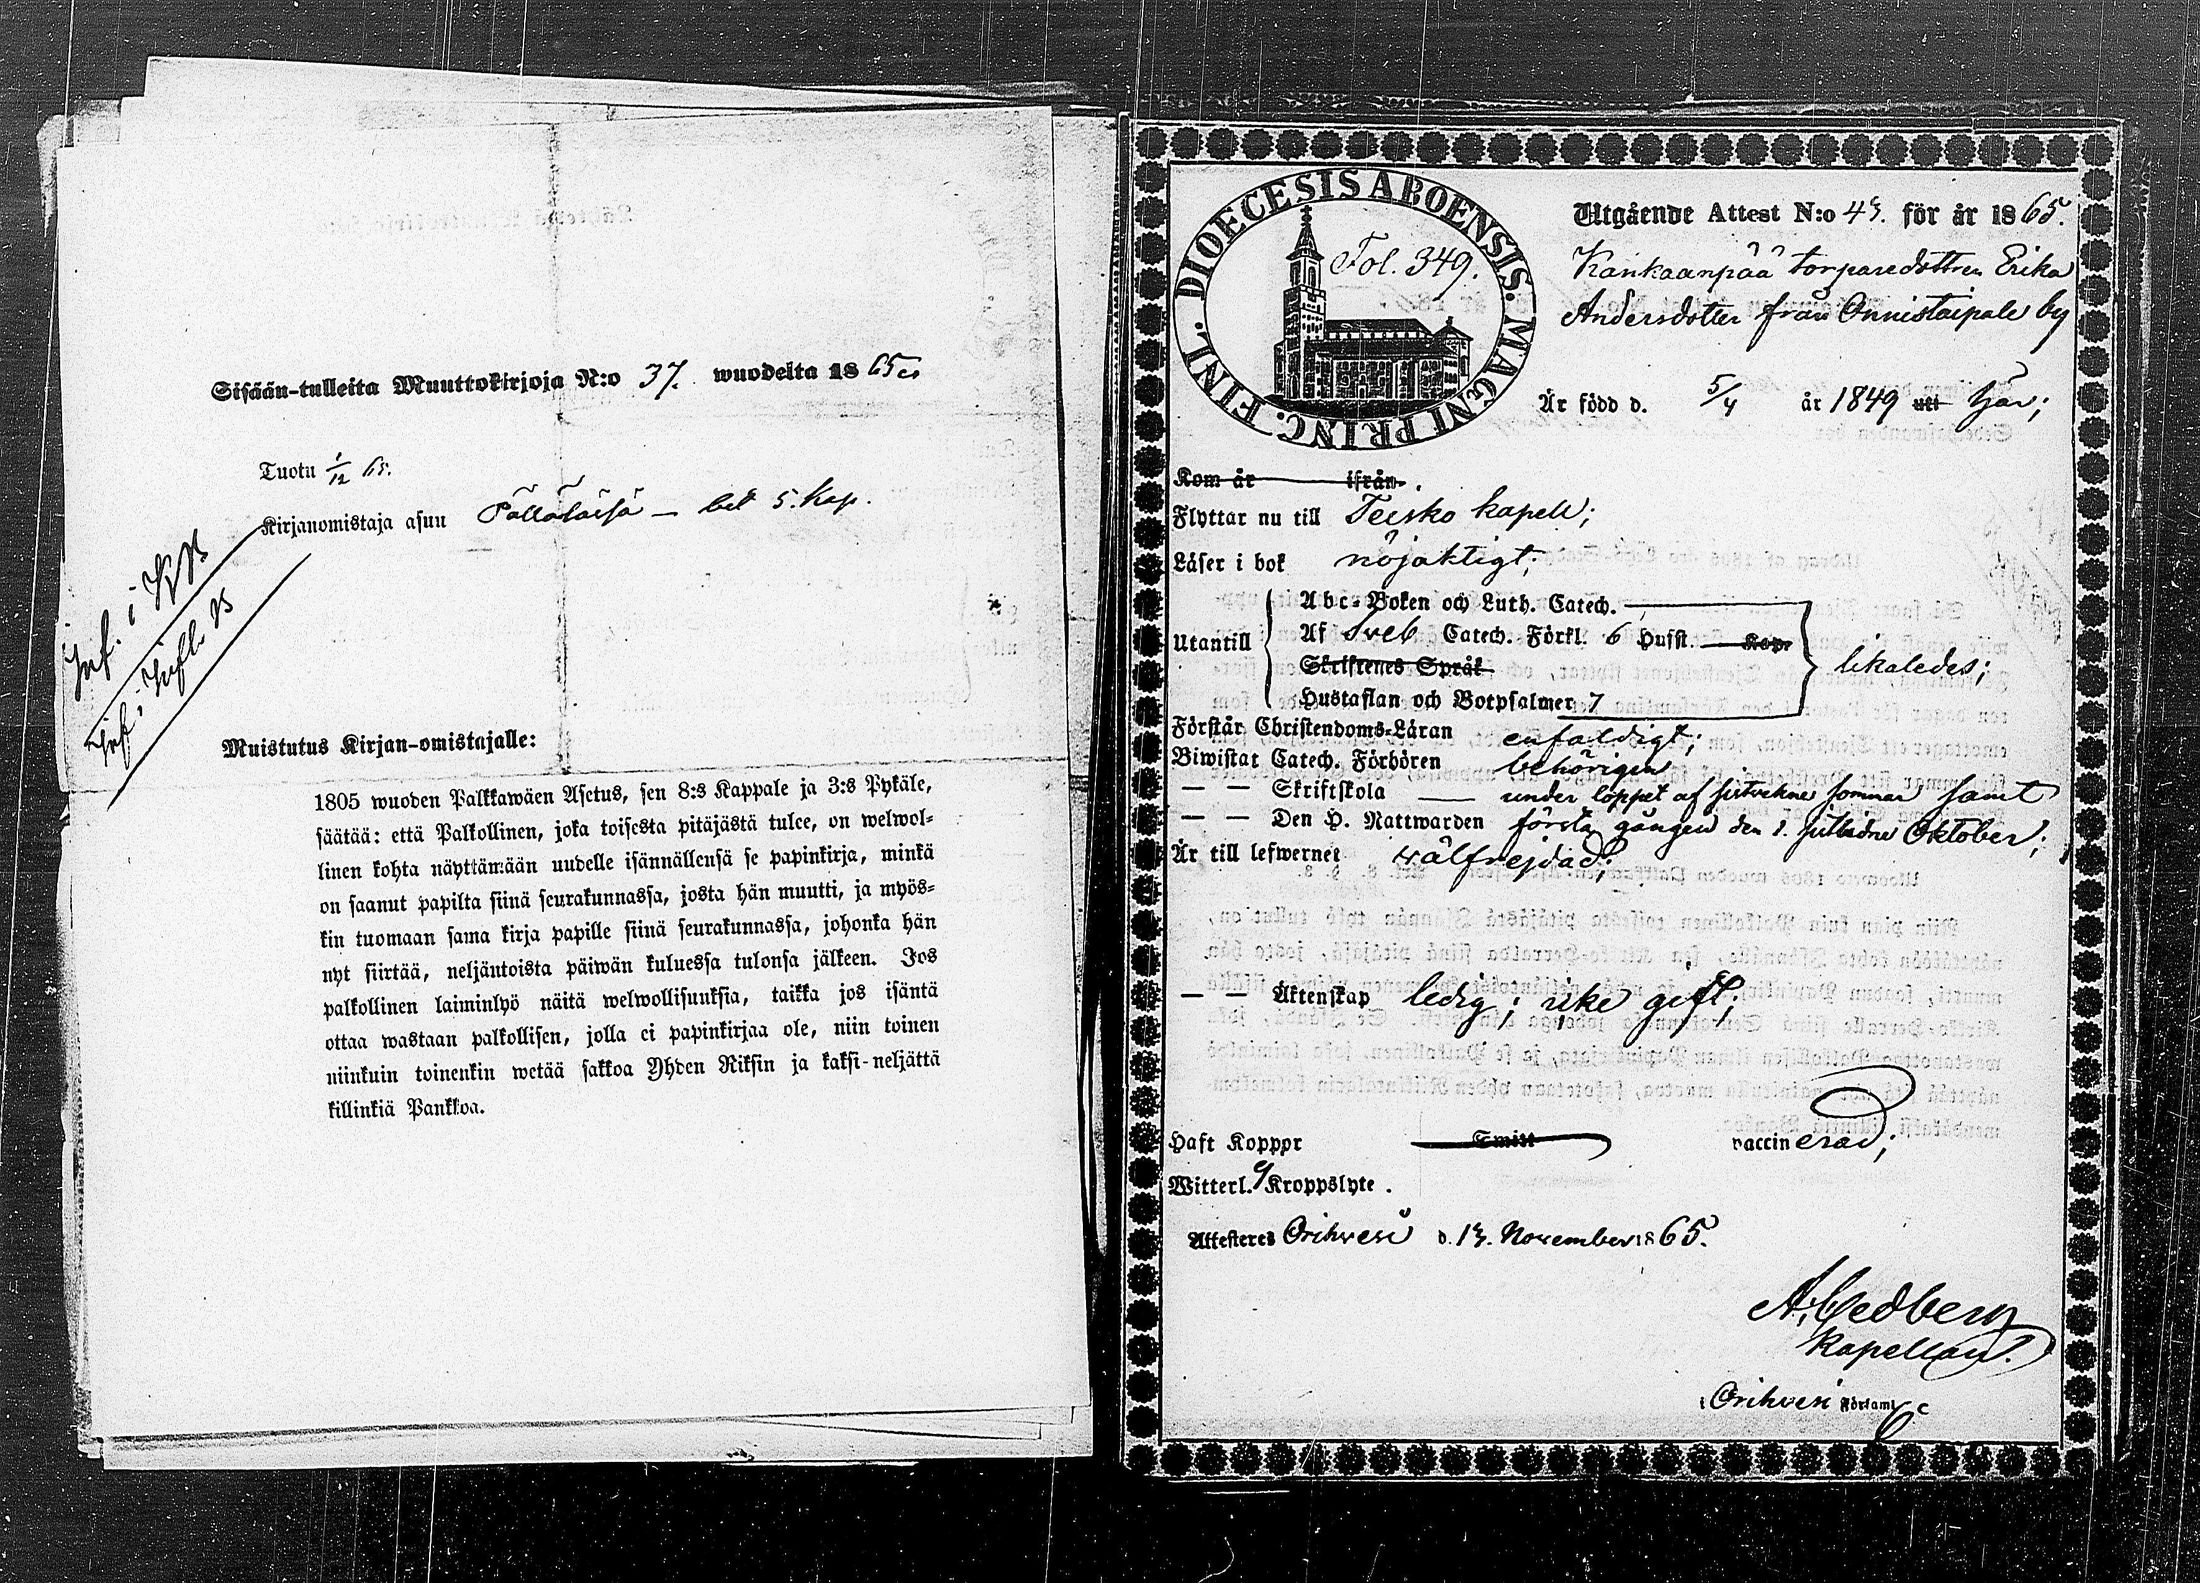 Sisään-tulleita Muuttokirjoja N:o 37. wuodelta 1865
Tuotu 1/12 65.
Kirjanomistaja asuu
Inf. i KB
Inf. i Infl. B
Muistutus Kirjan-omistajalle:
1805 wuoden Palkkawäen Asetus, sen 8:s Kappale ja 3:s Pykäle,
säätää: että Palkollinen, joka toisesta pitäjästä tulee, on welwol-
linen kohta näyttämään uudelle isännällensä se papinkirja, minkä
on saanut papilta siinä seurakunnassa, josta hän muutti, ja myös-
kin tuomaan sama kirja papille siinä seurakunnassa, johonka hän
nyt siirtää, neljäntoista päiwän kuluessa tulonsa jälkeen. Jos
palkollinen laiminlyö näitä welwollisuuksia, taikka jos isäntä
ottaa wastaan palkollisen, jolla ei papinkirjaa ole, niin toinen
niinkuin toinenkin wetää sakkoa Yhden Riksin ja kaksi-neljättä
killinkiä Pankkoa.
DIOECESIS ABOENSIS. MAGNI PRINC. FINL.
Fol. 349.
Utgående Attest N:o 43. för år 1865.
Kankaanpää torparedottren Erika
Andersdotter från Onnistaipale by
Är född d. 5/4 år 1849 uti här;
Kom år ifrån
Flyttar nu till Teisko kapell;
Läser i bok nöjaktigt;
Utantill
Abc-Boken och Luth. Catech.
Af Sveb Catech. Förkl. 6 Hufst. Kap.
Skriftenes Språk
Hustaflan och Botpsalmer 7
likaledes;
Förstår Christendoms-Läran enfaldigt;
Biwistat Catech. Förhören behörigen
— — Skriftskola under loppet af sistvekne sommar samt
— — Den H. Nattwarden första gången den 1. sistlidne Oktober;
Är till lefwernet välfrejdad;
— — Äktenskap ledig; icke gift;
Haft Koppor Smitt vaccinerad;
Witterl. Kroppslyte.
Attesteres Orihvesi d. 13. November 1865.
A. Cedberg
kapellan.
i Orihvesi Församl.